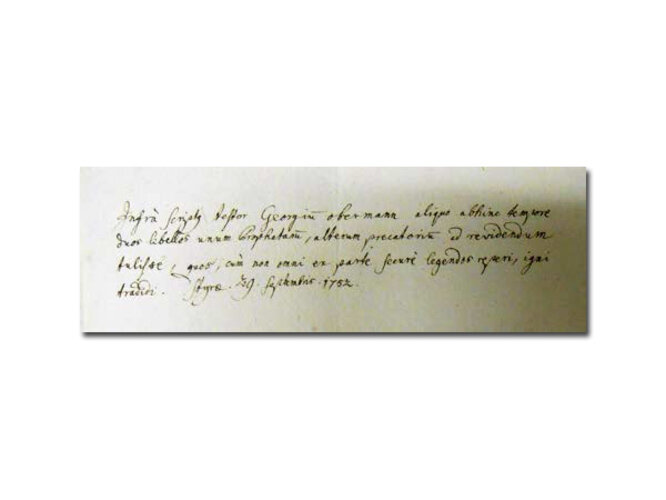 Infrà scriptq testor Georgiū obermann aliquo abhinc tempore
duos libellos unum Prophetarū, alterum precatoriū ad revidendum
tulisse, quos, cùm non omni ex parte securè legendos reperi, igni
tradidi. Styræ 9 Septembris 1752.